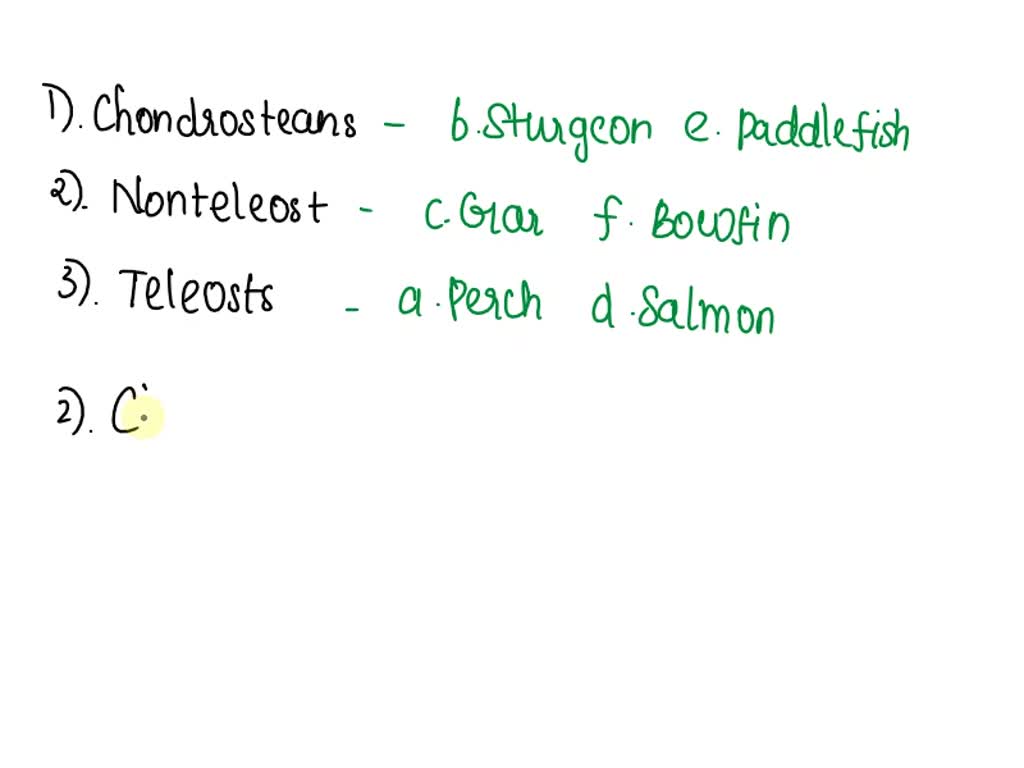 1). Chondrosteans - b. Sturgeon e. paddlefish
2). Nonteleost - c. Gar f. Bowfin
3). Teleosts - a. Perch d. Salmon
2). C